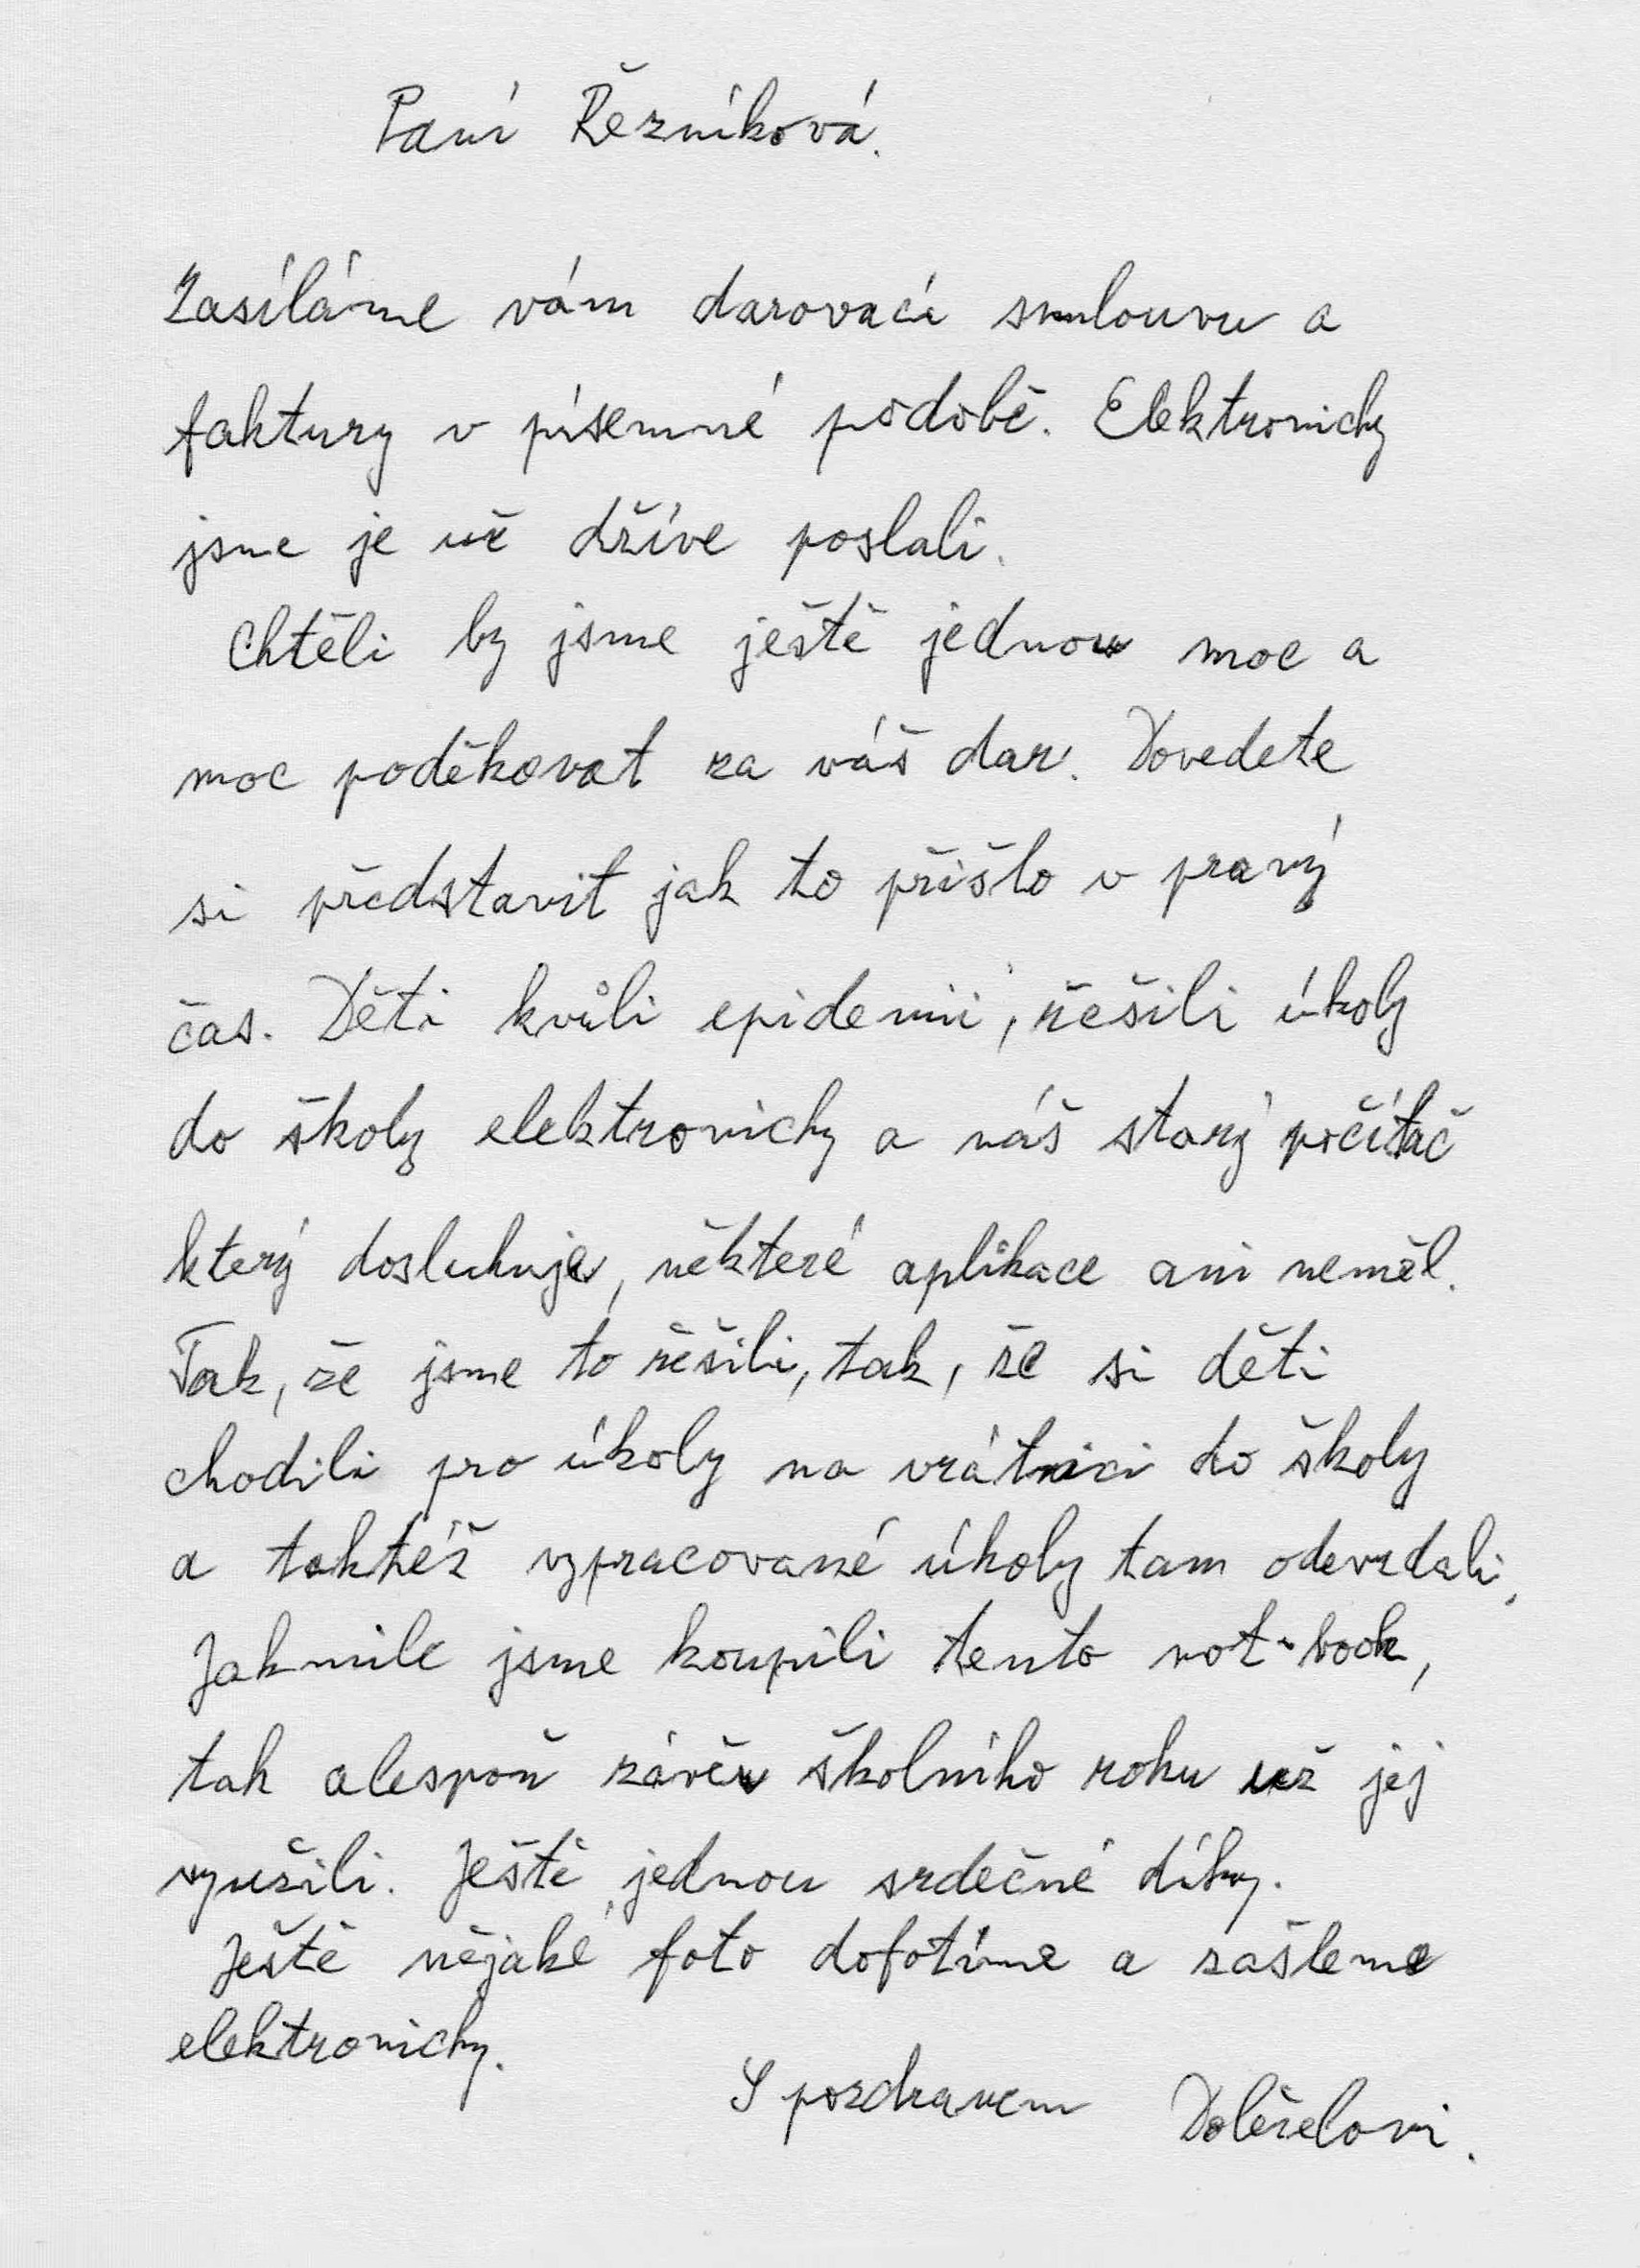 Paní Řezníková.
Zasíláme vám darovací smlouvu a
faktury v písemné podobě. Elektronicky
jsme je už dříve poslali.
Chtěli by jsme ještě jednou moc a
moc poděkovat za váš dar. Dovedete
si představit jak to přišlo v pravý
čas. Děti kvůli epidemii, řešili úkoly
do školy elektronicky a náš starý počítač
který dosluhuje, některé aplikace ani neměl.
Tak, že jsme to řešili, tak, že si děti
chodili pro úkoly na vrátnici do školy
a taktéž vypracované úkoly tam odevzdali.
Jakmile jsme koupili tento not-book,
tak alespoň závěr školního roku už jej
využili. Ještě jednou srdečné díky.
Ještě nějaké foto dofotíme a zašleme
elektronicky.
S pozdravem Doleželovi.